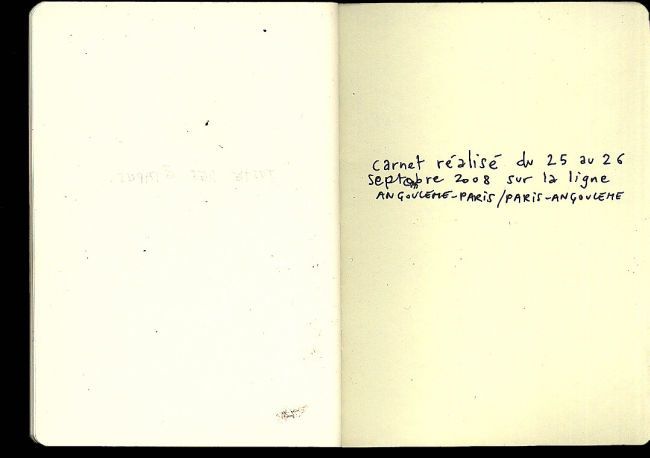 carnet réalisé du 25 au 26
septembre 2008 sur la ligne
ANGOULEME-PARIS/PARIS-ANGOULEME